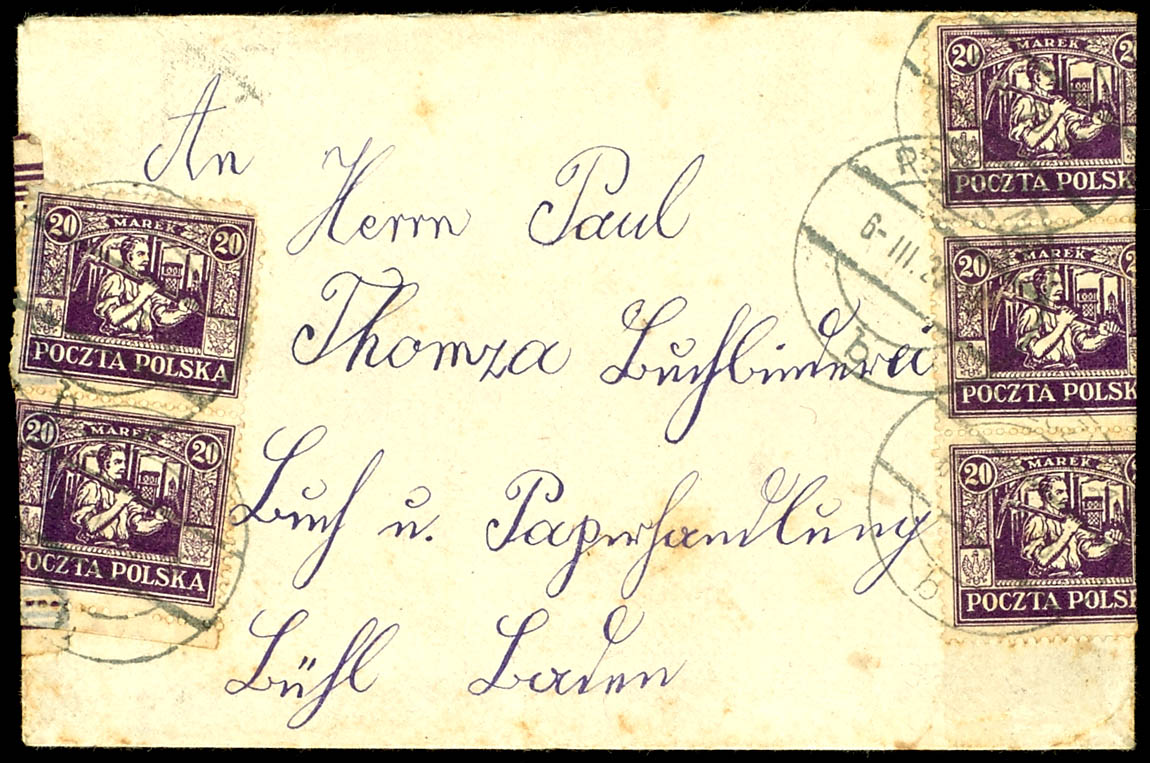 An
Herrn Paul
Thomza Buchbinderei
Buch u. Papierhandlung
Bühl Baden
20 MAREK 20
POCZTA POLSKA
20 MAREK 20
POCZTA POLSKA
20 MAREK 2
POCZTA POLSK
20 MAREK 2
POCZTA POLSKA
20 MAREK 2
POCZTA POLSK
6-III.2
b
b